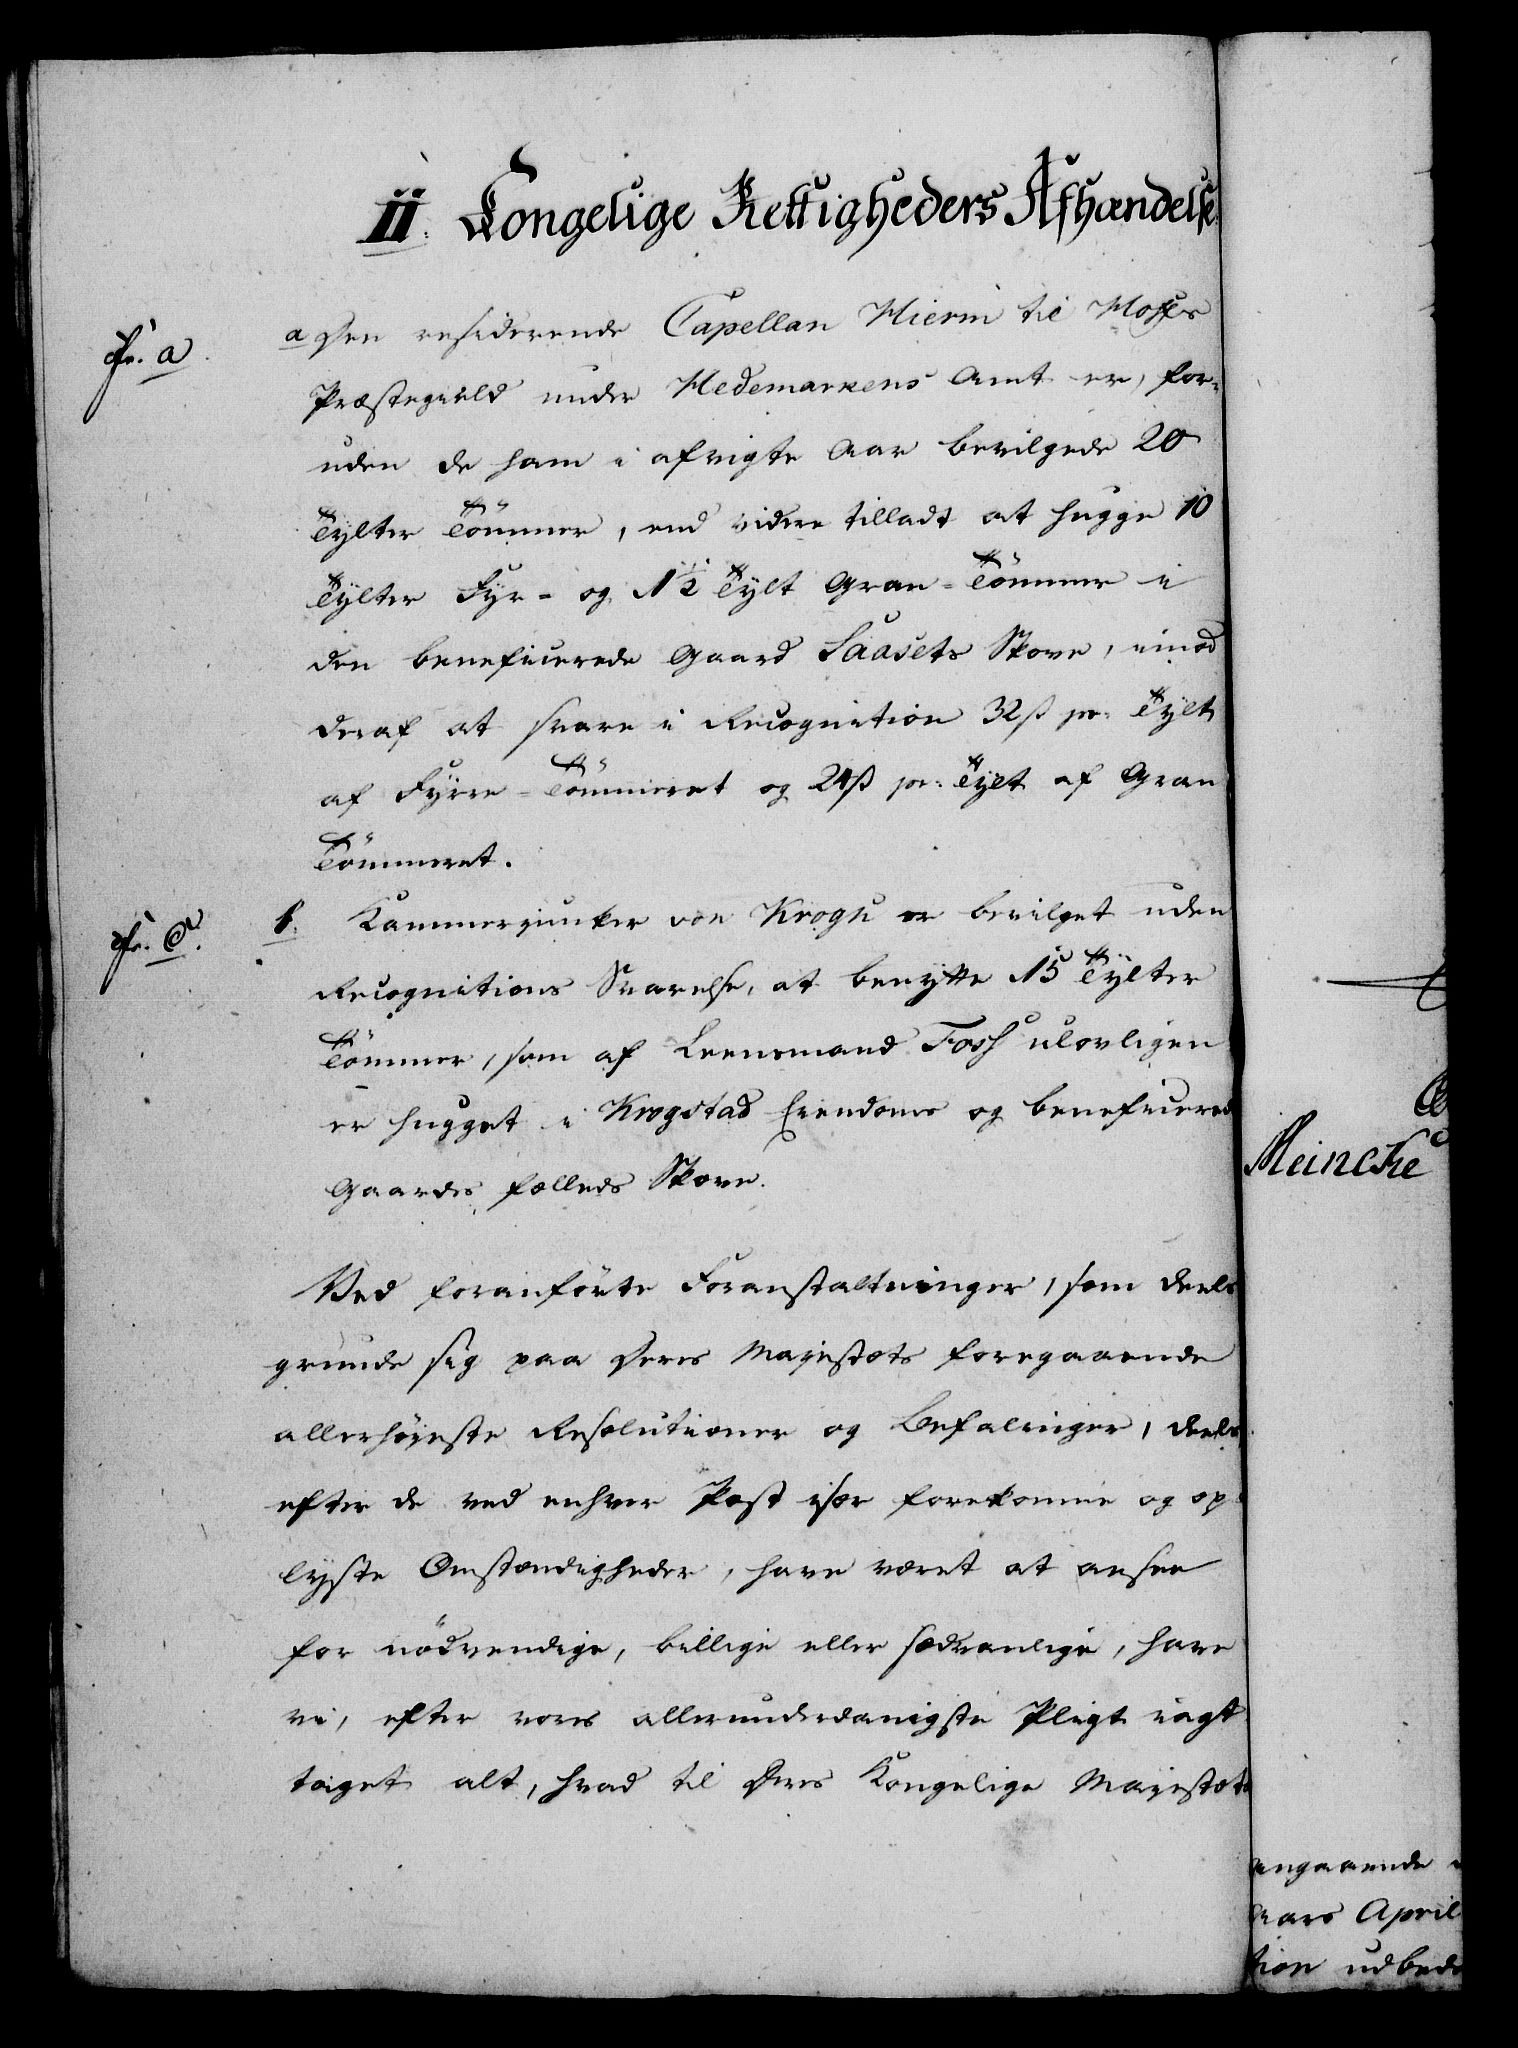 II. Kongelige Rettigheders Afhændelse.
cfr. a
a Den residerende Capellan Hierm til
Præstegield under Hedemarkens Amt er, for-
uden de ham i afvigte Aar bevilgede 20
Tylter Tömmer, end videre tilladt at hugge 10
Tylter Fyr- og 12 Tylt Gran-Tömmer i
den beneficerede Gaard Saasets Skove, imod
deraf at svare i Recognition 32 ß pr. Tylt
af Fyrre-Tömmeret og 24 ß pr. Tylt af Gran
Tömmeret.
cfr.
b. Kammerjunker von Krogh er bevilget uden
Recognitions Svarelse, at benytte 15 Tylter
Tömmer, som af Leensmand Foss ulovligen
er hugget i Krogstad Eiendoms og beneficerede
Gaardes fælleds Skove.
Ved foranförte Foranstaltninger, som deels
grunde sig paa Deres Majestæts foregaaende
allerhöjeste Resolutioner og Befalinger, deels
efter de ved enhver Post især forekomne og op-
lyste Omstændigheder, have været at ansee
for nödvendige, billige eller sædvanlige, have
vi, efter vores allerunderdanigste Pligt iagt-
taget alt, hvad til Deres Kongelige Majestæts
Meincke
angaaende
aars April
tion udbede